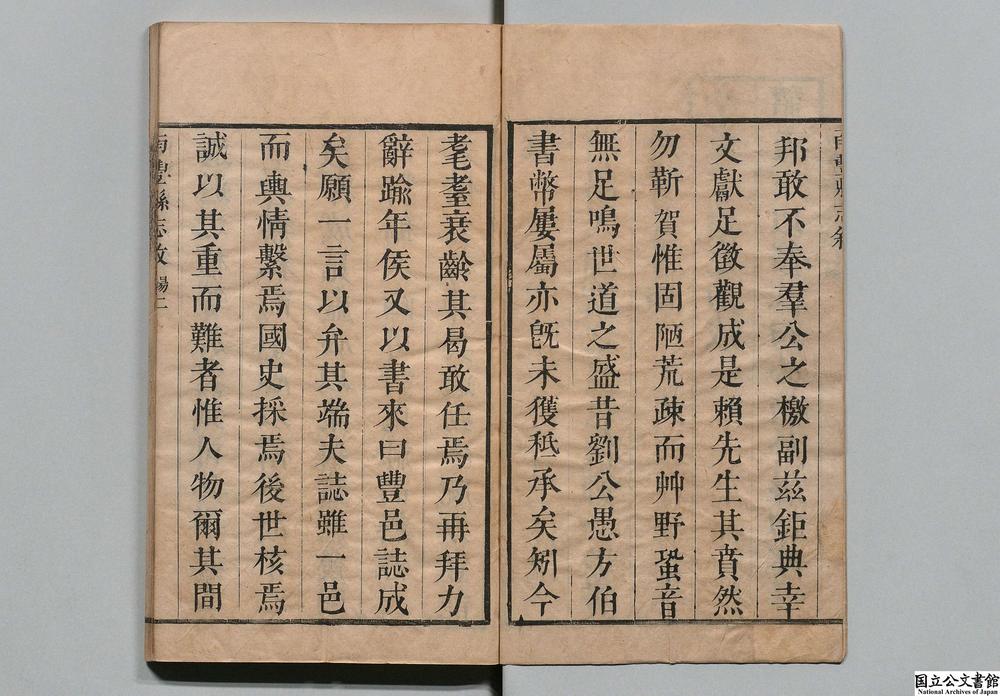 邦敢不奉羣公之檄副茲鉅典幸
文獻足徵觀成是賴先生其賁然
勿靳賀惟固陋荒疎而艸野蛩音
無足鳴世道之盛昔劉公愚方伯
書幣屢屬亦旣未獲秪承矣矧今
耄耋衰齡其曷敢任焉乃再拜力
辭踰年侯又以書來曰豐邑誌成
矣願一言以弁其端夫誌雖一邑
而輿情繫焉國史採焉後世核焉
誠以其重而難者惟人物爾其間
南豐縣志敘 楊二
国立公文書館
National Archives of Japan